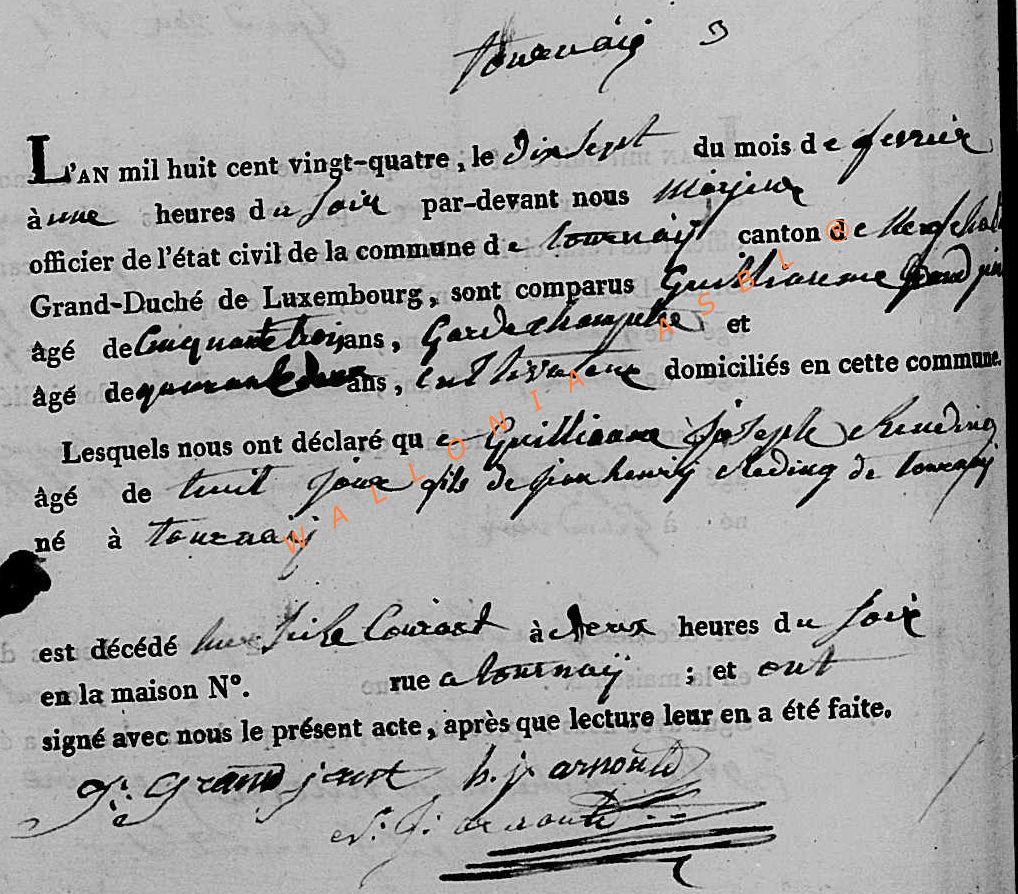 tournaij 3
L'AN mil huit cent vingt-quatre, le dixsept du mois de fevrier
à une heures du soir par-devant nous
officier de l'état civil de la commune de tournaij canton de Neufchat
Grand-Duché de Luxembourg, sont comparus Guilliaume Grand
âgé de Cinquante trois ans, Garde champetre et
âgé de quarante deux ans, cultivateur domiciliés en cette commune.
Lesquels nous ont déclaré que Guilliaume Joseph
âgé de huit jour fils de jean henrij de tournaij
né à tournaij
est décédé à deux heures du soir
en la maison N°. rue a tournaij ; et ont
signé avec nous le présent acte, après que lecture leur en a été faite.
g: Grand jean h. j. arnould
arnould
WALLONIA ASBL @